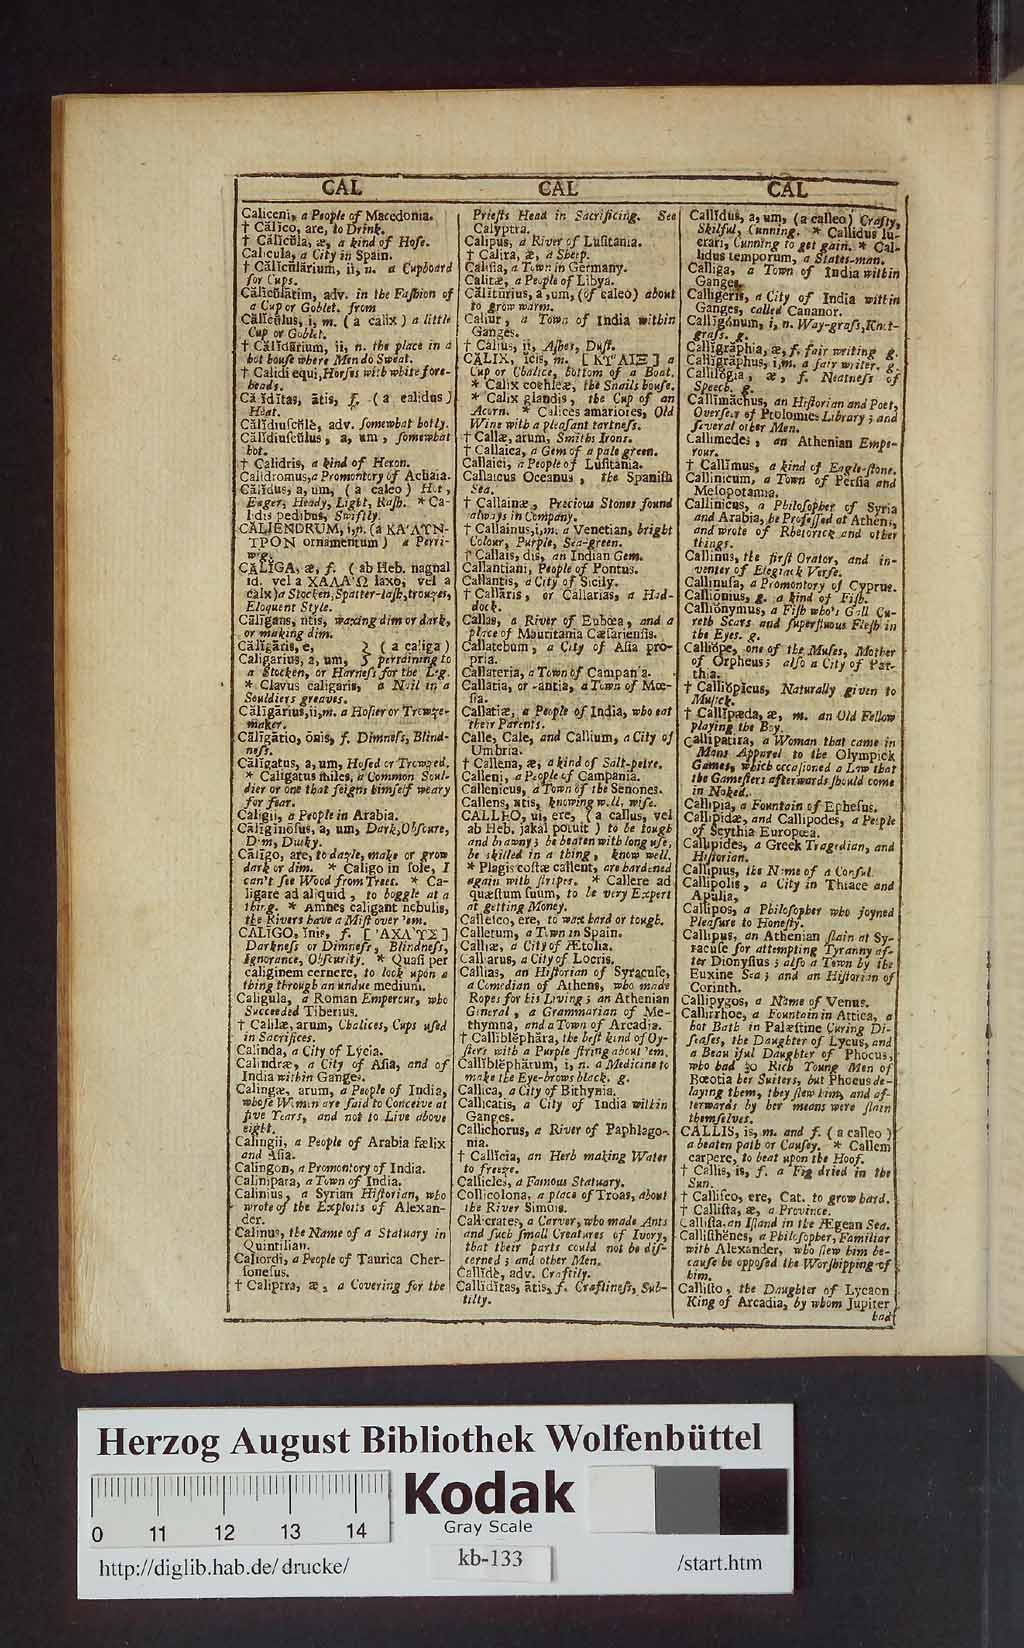 CAL
CAL
CAL
Caliceni, a People of Macedonia.
† Călĭco, are, to Drink.
† Călĭcŭla, æ, a kind of Hose.
Calicula, a City in Spain.
† Călĭcŭlārium, ii, n. a Cupboard
for Cups.
Călĭcŭlātim, adv. in the Fashion of
a Cup or Goblet. from
Călĭcŭlus, i, m. (a calix) a little
Cup or Goblet.
† Călĭdārium, ii, n. the place in a
hot house where Men do Sweat.
† Calidi equi, Horses with white fore-
heads.
Călĭdĭtas, ātis, f. (a calidus)
Heat.
Călĭdiuſcŭlè, adv. ſomewhat hotly.
Călĭdiuſcŭlus, a, um, ſomewhat
hot.
† Calidris, a kind of Heron.
Calidromus, a Promontory of Achaia.
Călĭdus, a, um, (a caleo) Hot,
Eager, Heady, Light, Raſh. * Ca-
lidis pedibus, Swiftly.
CALIENDRUM, i, n. (a ΚΑ'ΛΥΝ-
ΤΡΟΝ ornamentum) a Perri-
wig.
CALIGA, æ, f. (ab Heb. nagnal
id. vel a ΧΑΛΑ'Ω laxo, vel a
calx) a Stocken, Spatter-laſh, trouzes,
Eloquent Style.
Cālīgans, ntis, waxing dim or dark,
or making dim.
Călĭgāris, e, } (a caliga)
Caligarius, a, um, } pertaining to
a Stocken, or Harneſs for the Leg.
* Clavus caligaris, a Nail in a
Souldiers greaves.
Călĭgārius, ii, m. a Hoſier or Trowze-
maker.
Cālīgātio, ōnis, f. Dimneſs, Blind-
neſs.
Călĭgatus, a, um, Hoſed or Trowzed.
* Caligatus miles, a Common Soul-
dier or one that feigns himſelf weary
for fear.
Caligii, a People in Arabia.
Cālīginōſus, a, um, Dark, Obſcure,
Dim, Dusky.
Cālīgo, are, to dazle, make or grow
dark or dim. * Caligo in ſole, I
can't ſee Wood from Trees. * Ca-
ligare ad aliquid, to boggle at a
thing. * Amnes caligant nebulis,
the Rivers have a Miſt over 'em.
CALIGO, ĭnis, f. [ 'ΑΧΛΥ'Σ ]
Darkneſs or Dimneſs, Blindneſs,
Ignorance, Obſcurity. * Quaſi per
caliginem cernere, to look upon a
thing through an undue medium.
Caligula, a Roman Emperour, who
Succeeded Tiberius.
† Calilæ, arum, Chalices, Cups uſed
in Sacrifices.
Calinda, a City of Lycia.
Calindræ, a City of Aſia, and of
India within Ganges.
Calingæ, arum, a People of India,
whoſe Women are ſaid to Conceive at
five Years, and not to Live above
eight.
Calingii, a People of Arabia fælix
and Aſia.
Calingon, a Promontory of India.
Calinipara, a Town of India.
Calinius, a Syrian Hiſtorian, who
wrote of the Exploits of Alexan-
der.
Calinus, the Name of a Statuary in
Quintilian.
Caliordi, a People of Taurica Cher-
ſoneſus.
† Caliptra, æ, a Covering for the
Prieſts Head in Sacrificing. See
Calyptra.
Calipus, a River of Luſitania.
† Calira, æ, a Sheep.
Caliſia, a Town in Germany.
Calitæ, a People of Libya.
Călĭtūrius, a, um, (of caleo) about
to grow warm.
Caliur, a Town of India within
Ganges.
† Calius, ii, Aſhes, Duſt.
CALIX, ĭcis, m. [ ΚΥ'ΛΙΞ ] a
Cup or Chalice, bottom of a Boat.
* Calix cochleæ, the Snails houſe.
* Calix glandis, the Cup of an
Acorn. * Calices amariores, Old
Wine with a pleaſant tartneſs.
† Callæ, arum, Smiths Irons.
† Callaica, a Gem of a pale green.
Callaici, a People of Luſitania.
Callaicus Oceanus, the Spaniſh
Sea.
† Callainæ, Precious Stones found
always in Company.
† Callainus, i, m. a Venetian, bright
Colour, Purple, Sea-green.
† Callais, dis, an Indian Gem.
Callantiani, People of Pontus.
Callantis, a City of Sicily.
† Callăris, or Callarias, a Had-
dock.
Callas, a River of Eubœa, and a
place of Mauritania Cæſarienſis.
Callatebum, a City of Aſia pro-
pria.
Callateria, a Town of Campania.
Callatia, or -antia, a Town of Mœ-
ſia.
Callatiæ, a People of India, who eat
their Parents.
Calle, Cale, and Callium, a City of
Umbria.
† Callena, æ, a kind of Salt-petre.
Calleni, a People of Campania.
Callenicus, a Town of the Senones.
Callens, ntis, knowing well, wiſe.
CALLEO, ui, ere, (a callus, vel
ab Heb. jakal potuit) to be tough
and brawny; be beaten with long uſe,
be skilled in a thing, know well.
* Plagis coſtæ callent, are hardened
again with ſtripes. * Callere ad
quæſtum ſuum, to be very Expert
at getting Money.
Calleſco, ere, to wax hard or tough.
Calletum, a Town in Spain.
Calliæ, a City of Ætolia.
Calliarus, a City of Locris.
Callias, an Hiſtorian of Syracuſe,
a Comedian of Athens, who made
Ropes for his Living; an Athenian
General, a Grammarian of Me-
thymna, and a Town of Arcadia.
† Callĭblĕphăra, the beſt kind of Oy-
ſters with a Purple ſtring about 'em.
Callĭblĕphărum, i, n. a Medicine to
make the Eye-brows black. g.
Callica, a City of Bithynia.
Callicatis, a City of India within
Ganges.
Callichorus, a River of Paphlago-
nia.
† Callĭcia, an Herb making Water
to freeze.
Callicles, a Famous Statuary.
Collicolona, a place of Troas, about
the River Simois.
Callicrates, a Carver, who made Ants
and ſuch ſmall Creatures of Ivory,
that their parts could not be diſ-
cerned; and other Men.
Callĭdè, adv. Craftily.
Callĭdĭtas, ātis, f. Craftineſs, Sub-
tilty.
Callĭdus, a, um, (a calleo) Crafty,
Skilful, Cunning. * Callidus lu-
crari, Cunning to get gain. * Cal-
lidus temporum, a States-man.
Calliga, a Town of India within
Ganges.
Calligeris, a City of India within
Ganges, called Cananor.
Callĭgŏnum, i, n. Way-graſs, Knot-
graſs. g.
Callĭgrăphia, æ, f. fair writing g.
Callĭgrăphus, i, m. a fair writer. g.
Callĭlŏgia, æ, f. Neatneſs of
Speech. g.
Callĭmăchus, an Hiſtorian and Poet,
Overſeer of Ptolomies Library; and
ſeveral other Men.
Callimedes, an Athenian Empe-
rour.
† Callĭmus, a kind of Eagle-ſtone.
Callinicum, a Town of Perſia and
Meſopotamia.
Callinicus, a Philoſopher of Syria
and Arabia, he Profeſſed at Athens,
and wrote of Rhetorick and other
things.
Callinus, the firſt Orator, and in-
venter of Elegiack Verſe.
Callinuſa, a Promontory of Cyprus.
Callionius, g. a kind of Fiſh.
Callĭōnymus, a Fiſh who's Gall Cu-
reth Scars and ſuperfluous Fleſh in
the Eyes. g.
Callĭŏpe, one of the Muſes, Mother
of Orpheus; alſo a City of Par-
thia.
† Callĭŏpĭcus, Naturally given to
Muſick.
† Callĭpæda, æ, m. an Old Fellow
playing the Boy.
Callipatira, a Woman that came in
Mans Apparel to the Olympick
Games, which occaſioned a Law that
the Gameſters afterwards ſhould come
in Naked.
Callipia, a Fountain of Epheſus.
Callipidæ, and Callipodes, a People
of Scythia Europœa.
Callipides, a Greek Tragedian, and
Hiſtorian.
Callipius, the Name of a Conſul.
Callipolis, a City in Thrace and
Apulia,
Callipos, a Philoſopher who joyned
Pleaſure to Honeſty.
Callipus, an Athenian ſlain at Sy-
racuſe for attempting Tyranny af-
ter Dionyſius; alſo a Town by the
Euxine Sea; and an Hiſtorian of
Corinth.
Callipygos, a Name of Venus.
Callirrhoe, a Fountain in Attica, a
hot Bath in Palæſtine Curing Di-
ſeaſes, the Daughter of Lycus, and
a Beautiful Daughter of Phocus,
who had 30 Rich Young Men of
Bœotia her Suiters, but Phocus de-
laying them, they ſlew him, and af-
terwards by her means were ſlain
themſelves.
CALLIS, is, m. and f. (a calleo)
a beaten path or Cauſey. * Callem
carpere, to beat upon the Hoof.
† Callis, is, f. a Fig dried in the
Sun.
† Calliſco, ere, Cat. to grow hard.
† Calliſta, æ, a Province.
Calliſta, an Iſland in the Ægean Sea.
Calliſthĕnes, a Philoſopher, Familiar
with Alexander, who ſlew him be-
cauſe he oppoſed the Worſhipping of
him.
Calliſto, the Daughter of Lycaon
King of Arcadia, by whom Jupiter
had
Herzog August Bibliothek Wolfenbüttel
0 11 12 13 14
Kodak
Gray Scale
http://diglib.hab.de/drucke/
kb-133
/start.htm